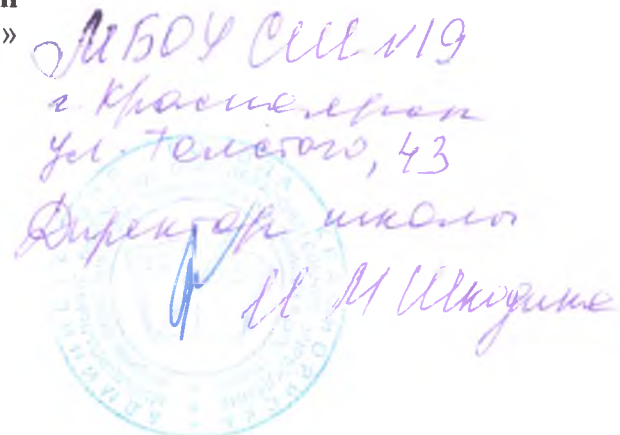 п
»
МБОУ СШ №19
г. Красноярск
ул. Толстого, 43
Директор школы
И М Шкодина